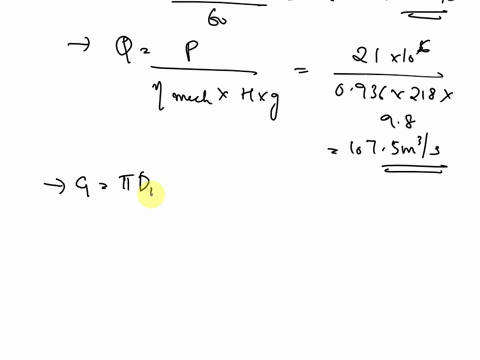 60
→ Q = P / η mech × H × g = 21 × 10⁶ / 0.936 × 218 × 9.8
= 107.5 m³/s
→ Q = π D₁